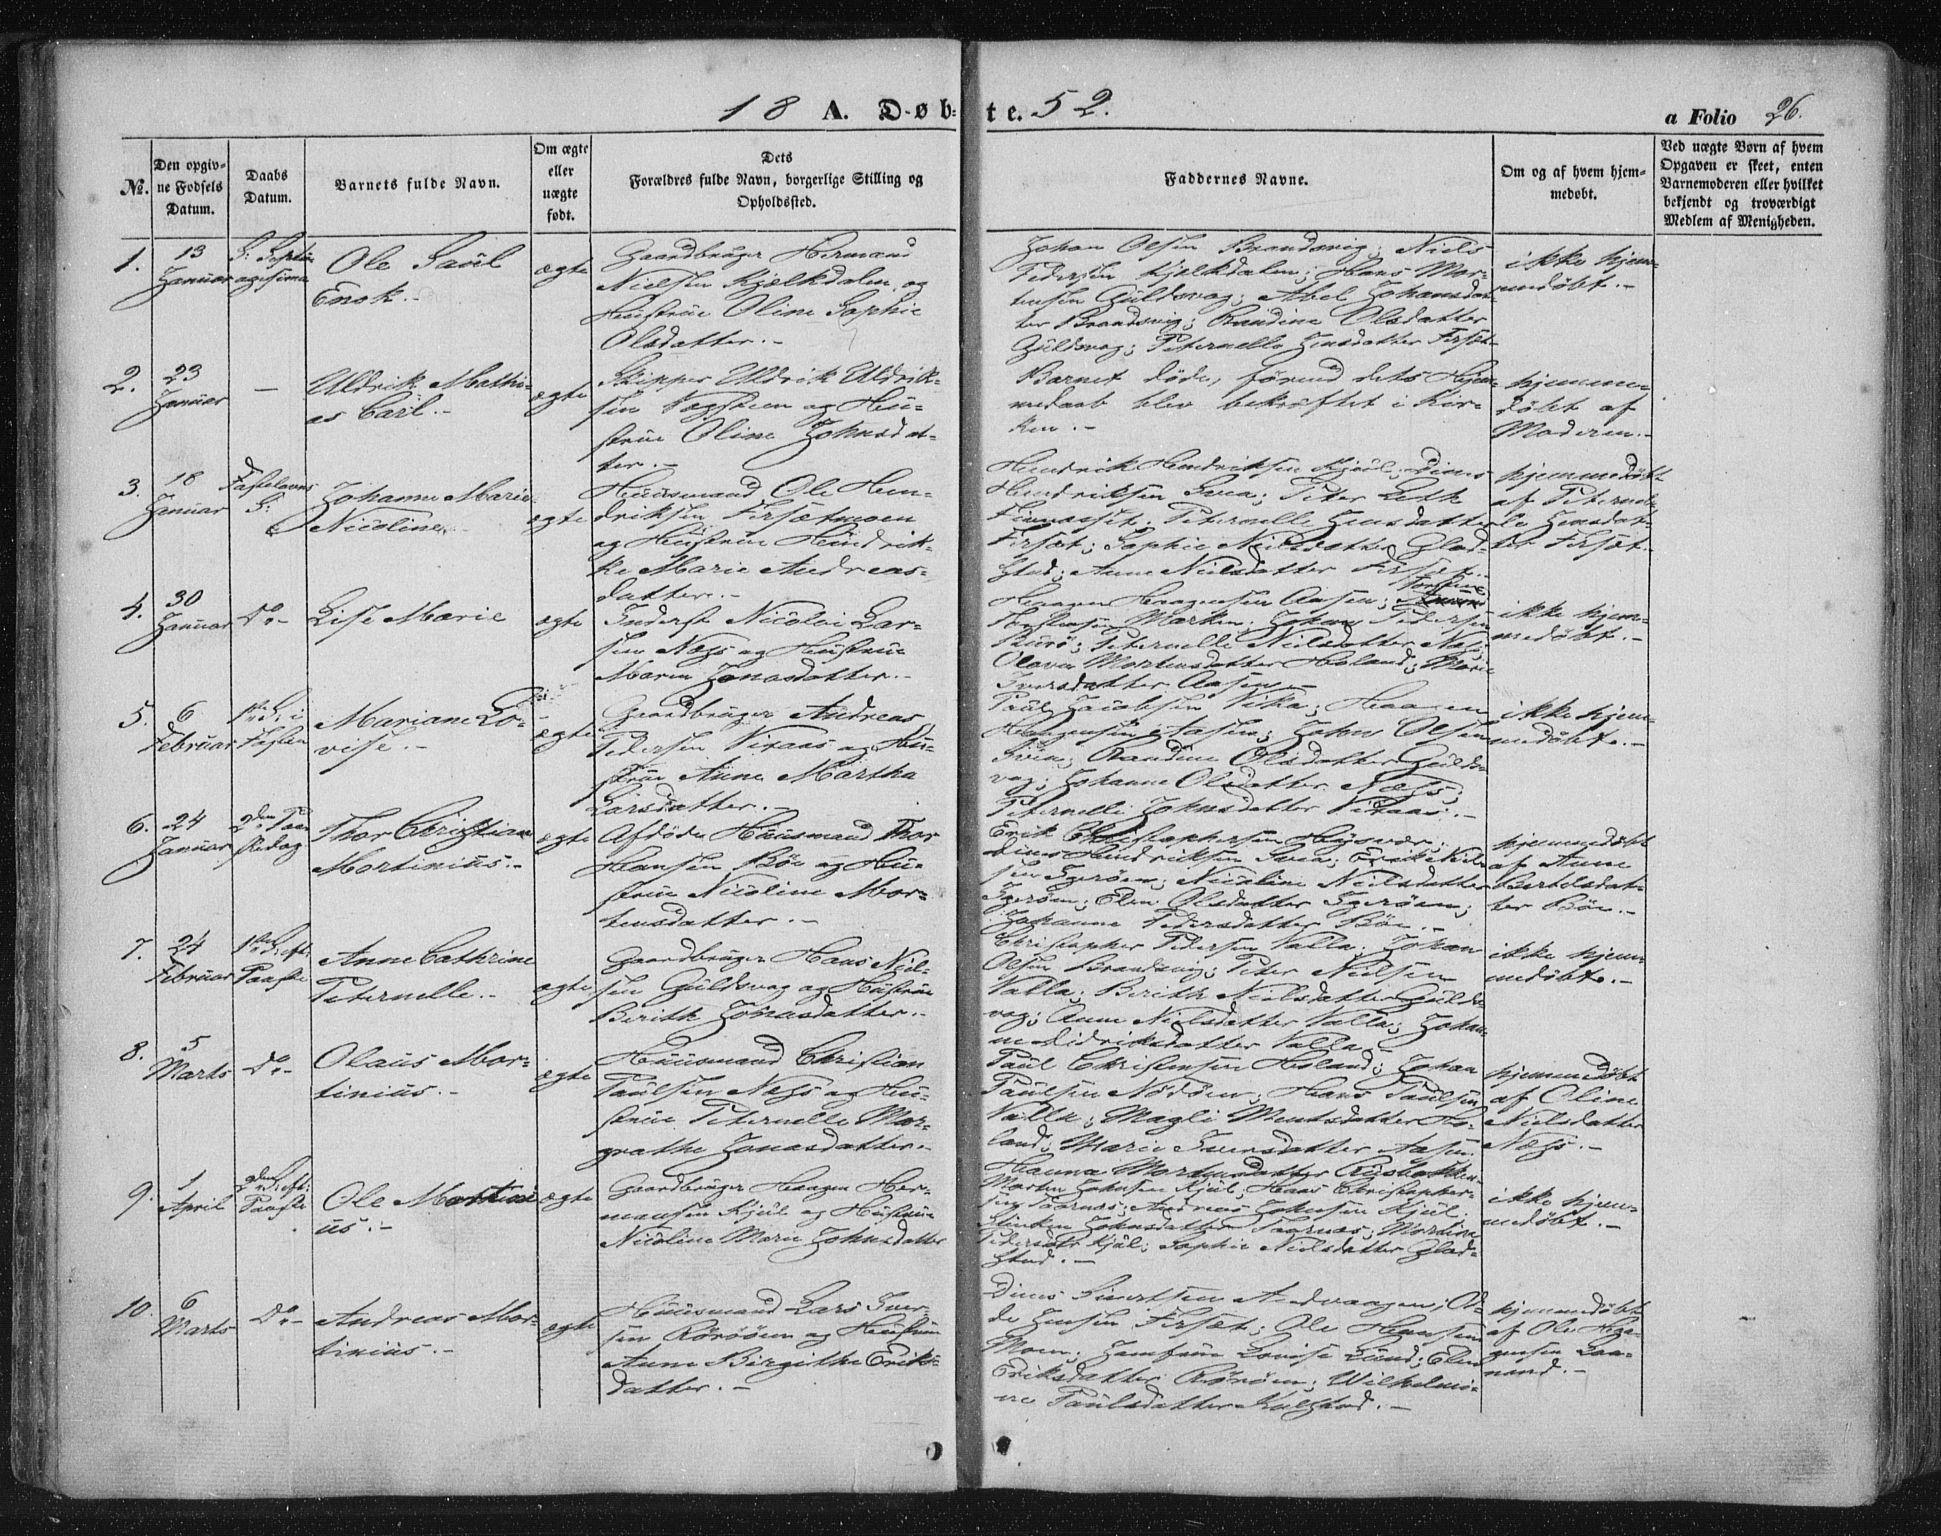 18 A. Døbte. 52.
a Folio 26.
No.
Den opgiv-
ne Fødsels
Datum.
Daabs
Datum.
Barnets fulde Navn.
Om ægte
eller
uægte
født.
Dets
Forældres fulde Navn, borgerlige Stilling og
Opholdssted.
Faddernes Navne.
Om og af hvem hjem-
medøbt.
Ved uægte Børn af hvem
Opgaven er skeet, enten
Barnemoderen eller hvilket
bekjendt og troværdigt
Medlem af Menigheden.
1.
13
Januar
S. Septu-
agesima
Ole Saul
Enok.-
ægte
Gaardbruger Hermand
Nielsen Kjelkdalen og
Hustrue Oline Sophie
Olsdatter.-
Johan Olsen Brandsvig; Niels
Pedersen Kjelkdalen; Hans Mor-
tensen Guldsvog; Abel Johansdat-
ter Brandsvig; Randine Olsdatter
Guldsvog; Peternelle Jensdatter Forsæt-
ikke hjem-
medøbt.-
2.
23
Januar
-
Uldrik Mathi-
as Carl.-
ægte
Skipper Uldrik Uldrik-
sen Vegsteen og Hu-
strue Oline Johnsdat-
ter.-
Barnet døde, førend dets Hjem-
medaab blev bekræftet i Kir-
ken.-
hjemme-
døbt af
Moderen.-
3.
18
Januar
Fastelavns
S.
Johanne Marie
Nicoline.
ægte
Huusmand Ole Hen-
driksen Forsætmoen
og Hustrue Hendrik-
ke Marie Andreas-
datter.-
Hendrik Hendriksen Kjul; Dines
Hendriksen Svea; Peter Leth
Finnesset; Peternelle Jensdatter
Forsæt; Sophie Nielsdatter Glad-
stad; Anne Nielsdatter Forsæt.-
hjemmedøbt
af Peternel-
le Jensdat-
ter Forsæt.-
4.
30
Januar
Do-
Lise Marie
ægte
Inderst Nicolai Lar-
sen Næss og Hustrue
Maren Jonasdatter.-
Haagen Haagensen Aasen;
Marken; Johan Pedersen
Burø; Peternelle Nielsdatter Næs;
Olava Mortensdatter Høland; Marie
Iversdatter Aasen.-
ikke hjem-
medøbt.-
5.
6
Februar
1ste S. i
Fasten
Mariane Lo-
vise.-
ægte
Gaardbruger Andreas
Pedersen Viraas og Hu-
strue Anne Martha
Larsdatter.-
Paul Jacobsen Vika; Haagen
Haagensen Aasen; John Olsen
Svea; Randine Olsdatter Gulds-
vog; Johanne Olsdatter Næss;
Peternelle Johnsdatter Viraas.-
ikke hjem-
medøbt.-
6.
24
Januar
2den Paa-
skedag
Thor Christian
Mortinius.-
ægte
Afdøde Huusmand Thor
Hansen Böe og Hu-
strue Nicoline Mor-
tensdatter.-
Erik Christophersen Høysvær;
Dines Hendriksen Svea; Erik Niel-
sen Igerøen; Nicoline Nielsdatter
Igerøen; Elen Olsdatter Igerøen;
Johanna Pedersdatter Böe.-
hjemmedøbt
af Anne
Bertelsdat-
ter Böe.-
7.
24
Februar
1ste S. eft:
Paaske
Anne Cathrine
Peternelle.-
ægte
Gaardbruger Hans Niel-
sen Guldsvog og Hustrue
Berith Johnasdatter.-
Christopher Pedersen Valla; Johan
Olsen Brandsvig; Peter Nielsen
Valla; Berith Nielsdatter Gulds-
vog; Anne Nielsdatter Valla; Johan-
ne Didriksdatter Valla.-
ikke hjem-
medøbt.-
8.
5
Marts
Do-
Olaus Mor-
tinius.-
ægte
Huusmand Christian
Paulsen Næss og Hu-
strue Peternelle Mar-
grathe Jonasdatter.-
Paul Christensen Høland; Johan
Paulsen Nordøen; Hans Paulsen
Valla; Magli Mentsdatter Hø-
land; Marie Iversdatter Aasen
Hanna Mortensdatter
hjemmedøbt
af Oline
Nielsdatter
Næss.-
9.
1
April
2den S. eft:
Paaske
Ole Mortini-
us.-
ægte
Gaardbruger Haagen Her-
mansen Kjul og Hustrue
Nicoline Marie Johnsdatter
Martin Johnsen Kjul; Hans Christopher-
sen Taarnæs; Andreas Johnsen Kjul;
Johnsdatter Taarnæs; Mortine
Pedersdtr Kjul; Sophie Nielsdatter Glad-
stad.-
ikke hjem-
medøbt.-
10.
6
Marts
Do-
Andreas Mor-
tinius.-
ægte
Huusmand Lars Iver-
sen Rørøøen og Hustrue
Anne Birgithe Eriks-
datter.-
Dines Sivertsen Andvaagen; Od-
de Jensen Forsæt; Ole Hansen
Moen; Jomfrue Lovise Lund; Elen
Eriksdatter Rørøen; Wilhelmi-
ne Paulsdatter Kulstad.-
hjemmedøbt
af Ole Haa-
gensen Laa-
nand.-